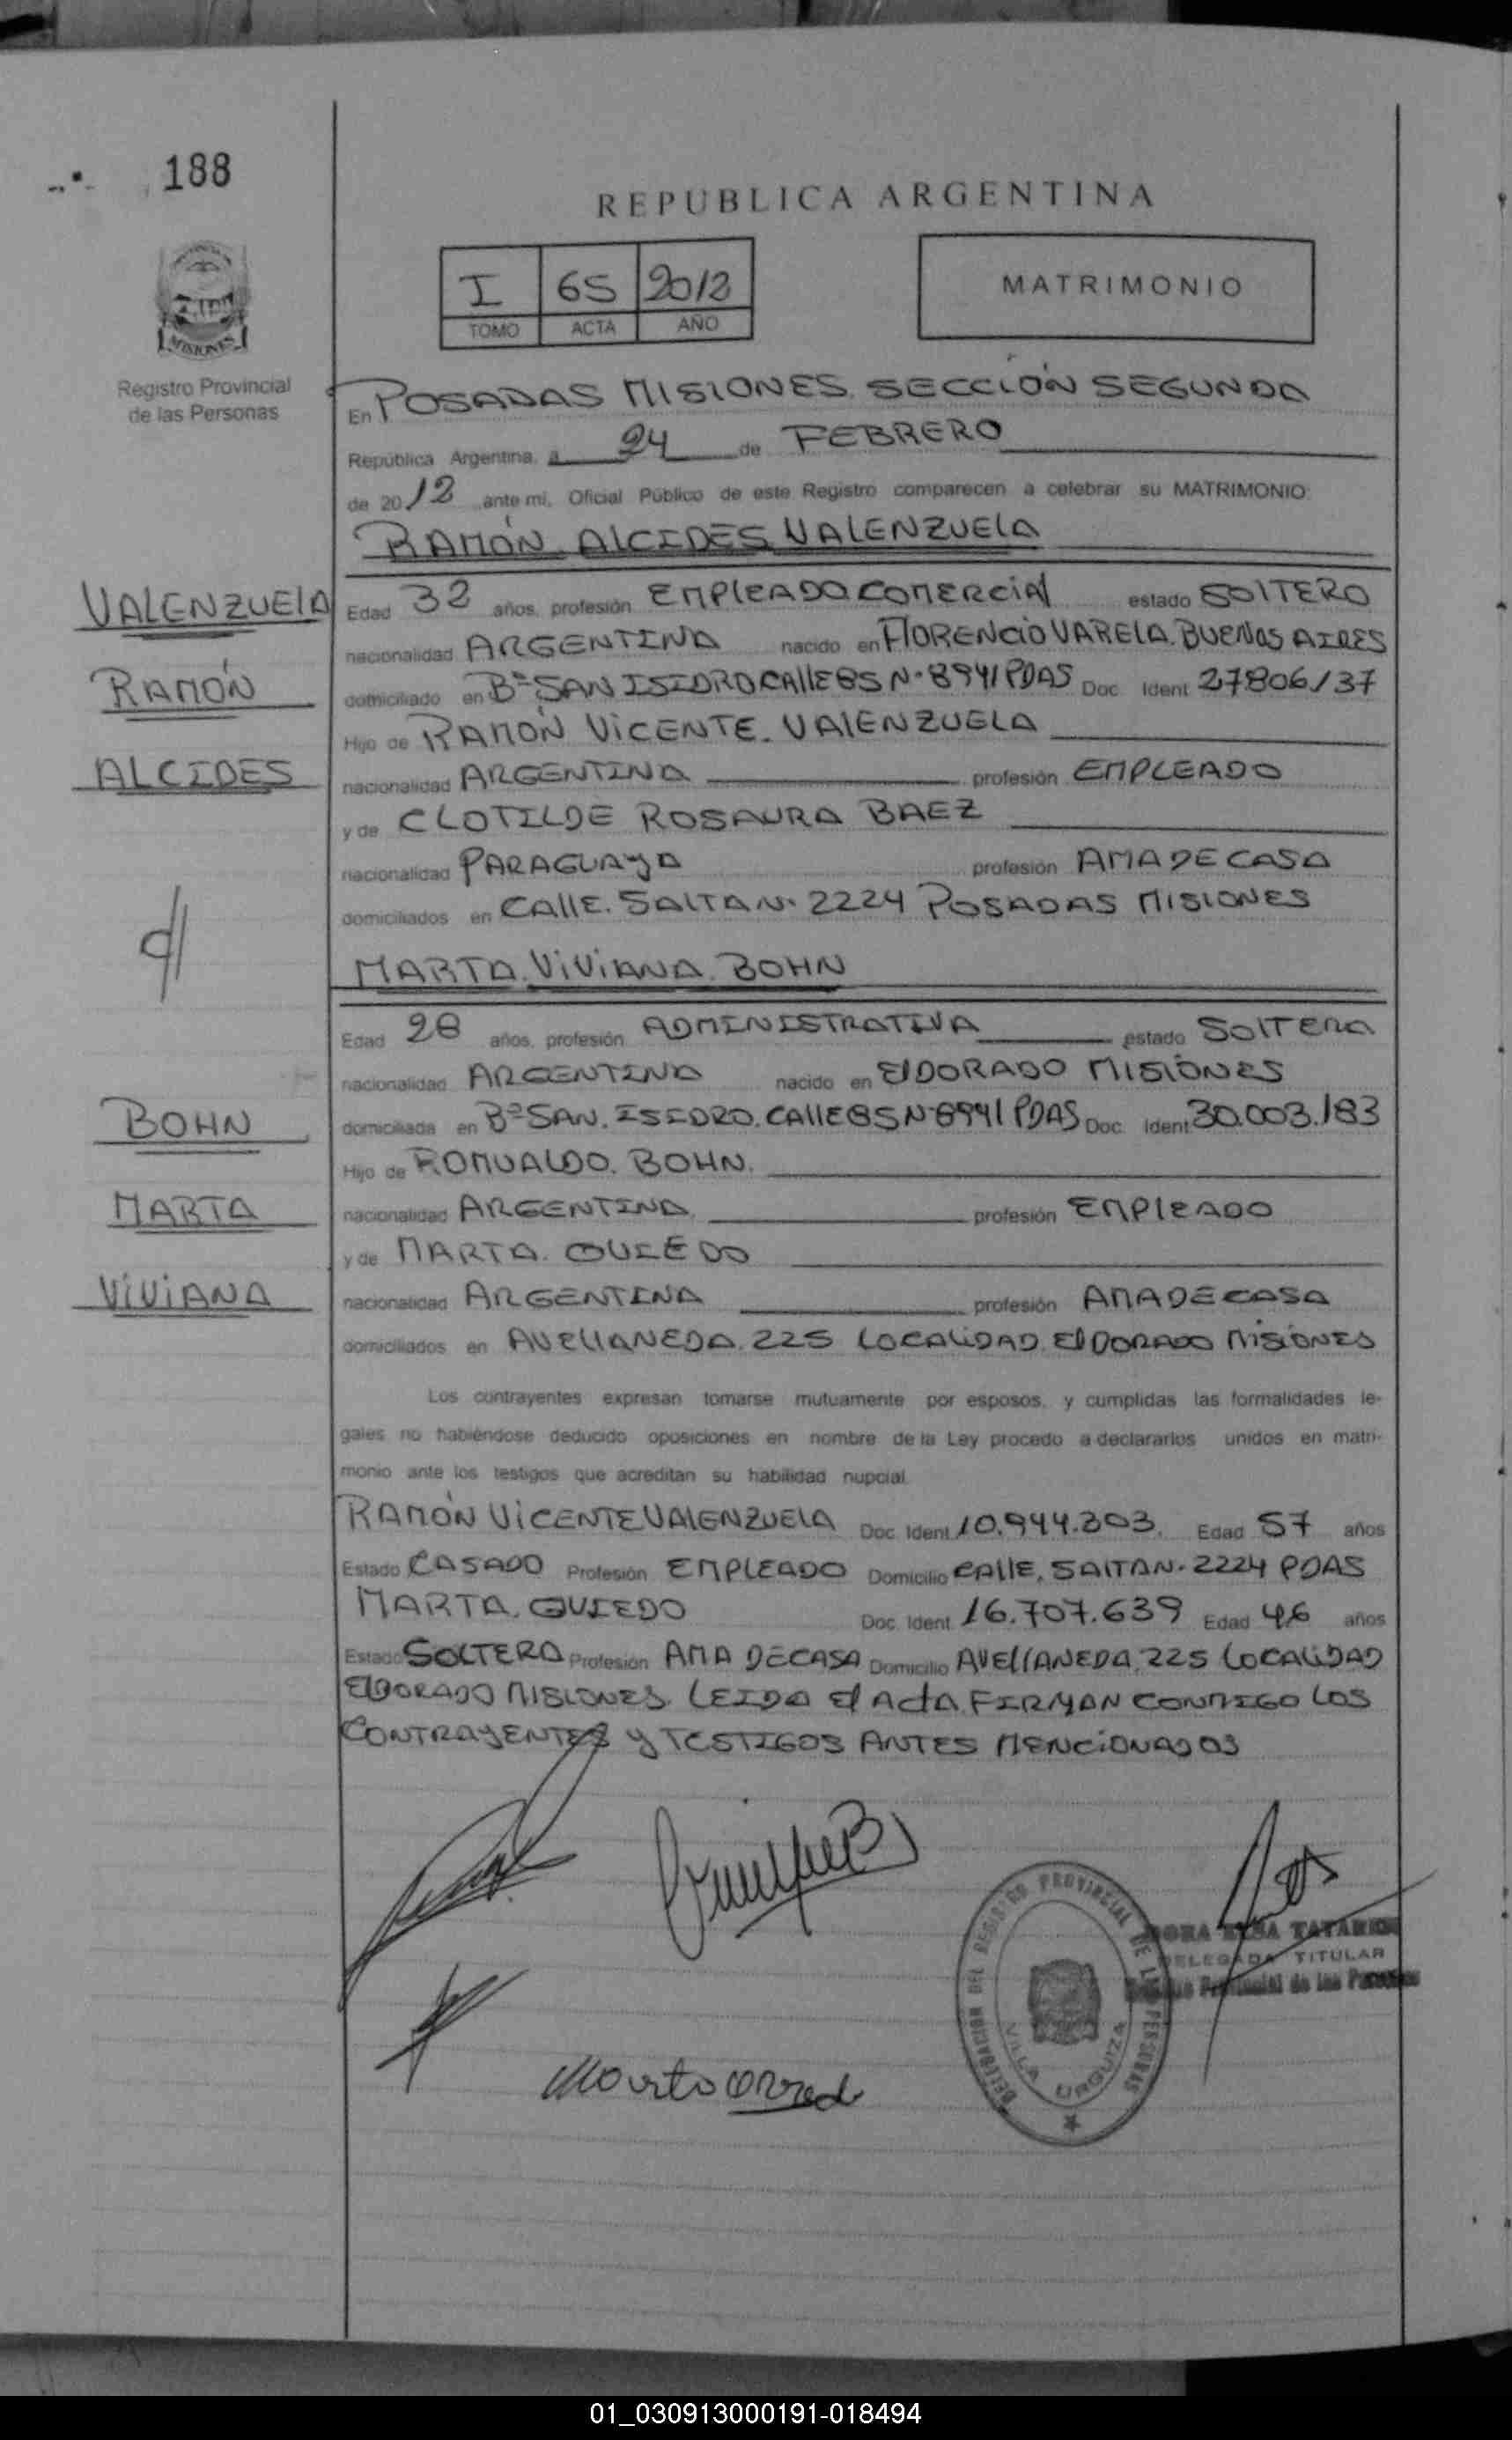 188
REPUBLICA ARGENTINA
I 65 2012
TOMO ACTA AÑO
MATRIMONIO
MISIONES
Registro Provincial
de las Personas
En POSADAS MISIONES. SECCIÓN SEGUNDA
República Argentina, a 24 de FEBRERO
de 2012 ante mi, Oficial Público de este Registro comparecen a celebrar su MATRIMONIO:
RAMÓN ALCIDES VALENZUELA
VALENZUELA
RAMÓN
ALCIDES
Edad 32 años, profesión EMPLEADO COMERCIAL estado SOLTERO
nacionalidad ARGENTINA nacido en FLORENCIO VARELA. BUENOS AIRES
domiciliado en Bº SAN ISIDRO CALLE 85 Nº 8941 PDAS Doc. Ident. 27806137
Hijo de RAMÓN VICENTE VALENZUELA
nacionalidad ARGENTINA profesión EMPLEADO
y de CLOTILDE ROSAURA BAEZ
nacionalidad PARAGUAYA profesión AMA DE CASA
domiciliados en CALLE. SALTA Nº 2224 POSADAS MISIONES
MARTA VIVIANA BOHN
BOHN
MARTA
VIVIANA
Edad 28 años, profesión ADMINISTRATIVA estado SOLTERA
nacionalidad ARGENTINA nacido en ELDORADO MISIONES
domiciliada en Bº SAN. ISIDRO. CALLE 85 Nº 8941 PDAS Doc. Ident. 30.003.183
Hijo de ROMUALDO. BOHN.
nacionalidad ARGENTINA profesión EMPLEADO
y de MARTA. OVIEDO
nacionalidad ARGENTINA profesión AMA DE CASA
domiciliados en AVELLANEDA. 225 LOCALIDAD ELDORADO MISIONES
Los contrayentes expresan tomarse mutuamente por esposos, y cumplidas las formalidades le-
gales no habiéndose deducido oposiciones en nombre de la Ley procedo a declararlos unidos en matri-
monio ante los testigos que acreditan su habilidad nupcial.
RAMÓN VICENTE VALENZUELA Doc. Ident. 10.944.303. Edad 57 años
Estado CASADO Profesión EMPLEADO Domicilio CALLE. SALTA Nº 2224 PDAS
MARTA. OVIEDO Doc. Ident. 16.707.639 Edad 46 años
Estado SOLTERA Profesión AMA DE CASA Domicilio AVELLANEDA. 225 LOCALIDAD
ELDORADO MISIONES. LEIDA El ActA FIRMAN CONMIGO LOS
CONTRAYENTES Y TESTIGOS ANTES MENCIONADOS
DELEGACION DEL REGISTRO PROVINCIAL DE LAS PERSONAS
VILLA URQUIZA
DELEGADA TITULAR
Provincial de las Personas
01_030913000191-018494